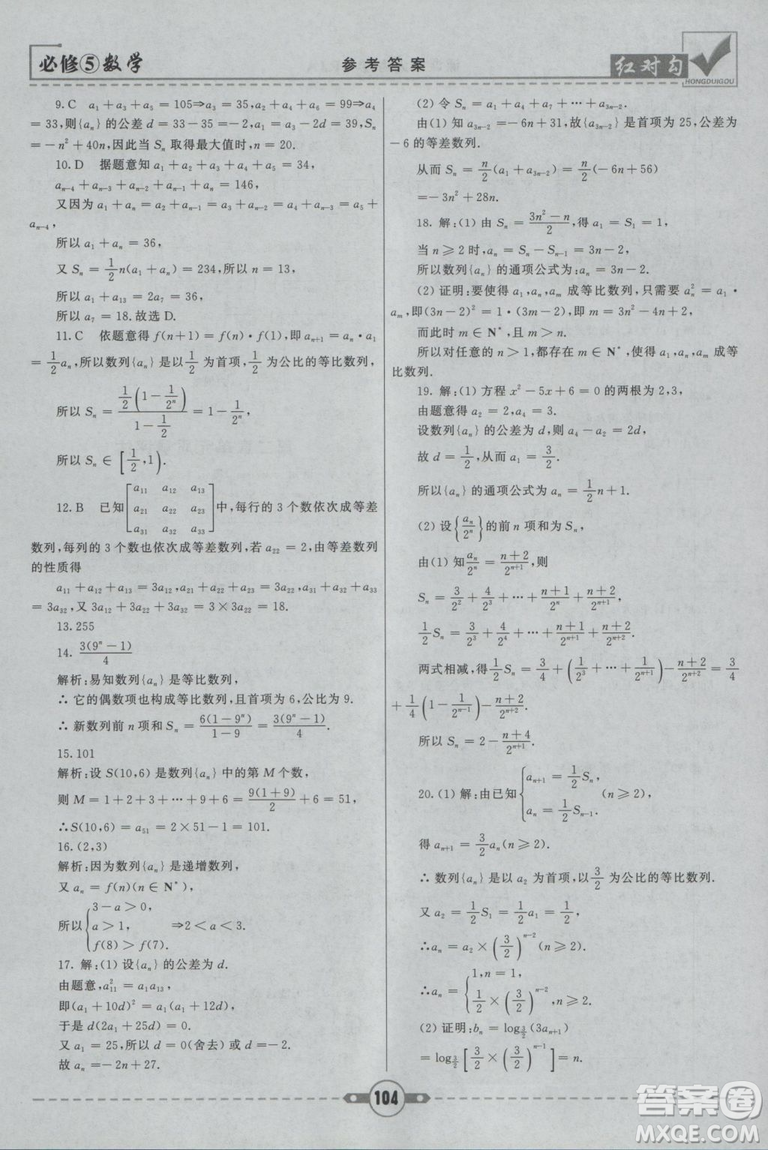 必修⑤数学
参考答案
红对勾
HONGDUIGOU
9.C　a₁+a₃+a₅=105⇒a₃=35,a₂+a₄+a₆=99⇒a₄
=33,则{aₙ}的公差 d=33-35=-2,a₁=a₃-2d=39,Sₙ
=-n²+40n,因此当 Sₙ 取得最大值时,n=20.
10.D　据题意知 a₁+a₂+a₃+a₄+a₅=34,
aₙ₋₄+aₙ₋₃+aₙ₋₂+aₙ₋₁+aₙ=146,
又因为 a₁+aₙ=a₂+aₙ₋₁=a₃+aₙ₋₂=a₄+aₙ₋₃=a₅+
aₙ₋₄,
所以 a₁+aₙ=36,
又 Sₙ=1/2 n(a₁+aₙ)=234,所以 n=13,
所以 a₁+a₁₃=2a₇=36,
所以 a₇=18.故选 D.
11.C　依题意得 f(n+1)=f(n)·f(1),即 aₙ₊₁=aₙ·a₁
=1/2 aₙ,所以数列{aₙ}是以 1/2 为首项,1/2 为公比的等比数列,
所以 Sₙ=[1/2(1-1/2ⁿ)]/(1-1/2)=1-1/2ⁿ,
所以 Sₙ∈[1/2,1).
12.B　已知[a₁₁ a₁₂ a₁₃
a₂₁ a₂₂ a₂₃
a₃₁ a₃₂ a₃₃]中,每行的 3 个数依次成等差
数列,每列的 3 个数也依次成等差数列,若 a₂₂=2,由等差数列
的性质得
a₁₁+a₁₂+a₁₃=3a₁₂,a₂₁+a₂₂+a₂₃=3a₂₂,a₃₁+a₃₂+a₃₃
=3a₃₂,又 3a₁₂+3a₂₂+3a₃₂=3×3a₂₂=18.
13.255
14. 3(9ⁿ-1)/4
解析:易知数列{aₙ}是等比数列,
∴ 它的偶数项也构成等比数列,且首项为 6,公比为 9.
∴ 新数列前 n 项和 Sₙ=6(1-9ⁿ)/(1-9)=3(9ⁿ-1)/4.
15.101
解析:设 S(10,6)是数列{aₙ}中的第 M 个数,
则 M=1+2+3+…+9+6=9(1+9)/2+6=51,
∴S(10,6)=a₅₁=2×51-1=101.
16.(2,3)
解析:因为数列{aₙ}是递增数列,
又 aₙ=f(n)(n∈N*),
所以{3-a>0,
a>1,
f(8)>f(7) ⇒2<a<3.
17. 解:(1)设{aₙ}的公差为 d.
由题意,a₁₁²=a₁a₁₃,
即(a₁+10d)²=a₁(a₁+12d),
于是 d(2a₁+25d)=0,
又 a₁=25,所以 d=0(舍去)或 d=-2.
故 aₙ=-2n+27.
(2)令 Sₙ=a₁+a₄+a₇+…+a₃ₙ₋₂.
由(1)知 a₃ₙ₋₂=-6n+31,故{a₃ₙ₋₂}是首项为 25,公差为
-6 的等差数列.
从而 Sₙ=n/2(a₁+a₃ₙ₋₂)=n/2(-6n+56)
=-3n²+28n.
18. 解:(1)由 Sₙ=(3n²-n)/2,得 a₁=S₁=1,
当 n≥2 时,aₙ=Sₙ-Sₙ₋₁=3n-2,
所以数列{aₙ}的通项公式为:aₙ=3n-2.
(2)证明:要使得 a₁,aₙ,aₘ 成等比数列,只需要 aₙ²=a₁·
aₘ,即(3n-2)²=1·(3m-2),即 m=3n²-4n+2,
而此时 m∈N*,且 m>n.
所以对任意的 n>1,都存在 m∈N*,使得 a₁,aₙ,aₘ 成等
比数列.
19. 解:(1)方程 x²-5x+6=0 的两根为 2,3,
由题意得 a₂=2,a₄=3.
设数列{aₙ}的公差为 d,则 a₄-a₂=2d,
故 d=1/2,从而 a₁=3/2.
所以{aₙ}的通项公式为 aₙ=1/2 n+1.
(2)设{aₙ/2ⁿ}的前 n 项和为 Sₙ,
由(1)知 aₙ/2ⁿ=(n+2)/2ⁿ⁺¹,则
Sₙ=3/2²+4/2³+…+(n+1)/2ⁿ+(n+2)/2ⁿ⁺¹,
1/2 Sₙ=3/2³+4/2⁴+…+(n+1)/2ⁿ⁺¹+(n+2)/2ⁿ⁺².
两式相减,得 1/2 Sₙ=3/4+(1/2³+…+1/2ⁿ⁺¹)-(n+2)/2ⁿ⁺²=3/4
+1/4(1-1/2ⁿ⁻¹)-(n+2)/2ⁿ⁺².
所以 Sₙ=2-(n+4)/2ⁿ⁺¹.
20.(1)解:由已知{aₙ₊₁=1/2 Sₙ,
aₙ=1/2 Sₙ₋₁. (n≥2),
得 aₙ₊₁=3/2 aₙ(n≥2).
∴ 数列{aₙ}是以 a₂ 为首项,以 3/2 为公比的等比数列.
又 a₂=1/2 S₁=1/2 a₁=1/2,
∴aₙ=a₂×(3/2)ⁿ⁻²(n≥2).
∴aₙ={1,n=1,
1/2×(3/2)ⁿ⁻²,n≥2.
(2)证明:bₙ=log_{3/2}(3aₙ₊₁)
=log_{3/2}[3/2×(3/2)ⁿ⁻¹]=n.
104
答案圈
MXQE.COM